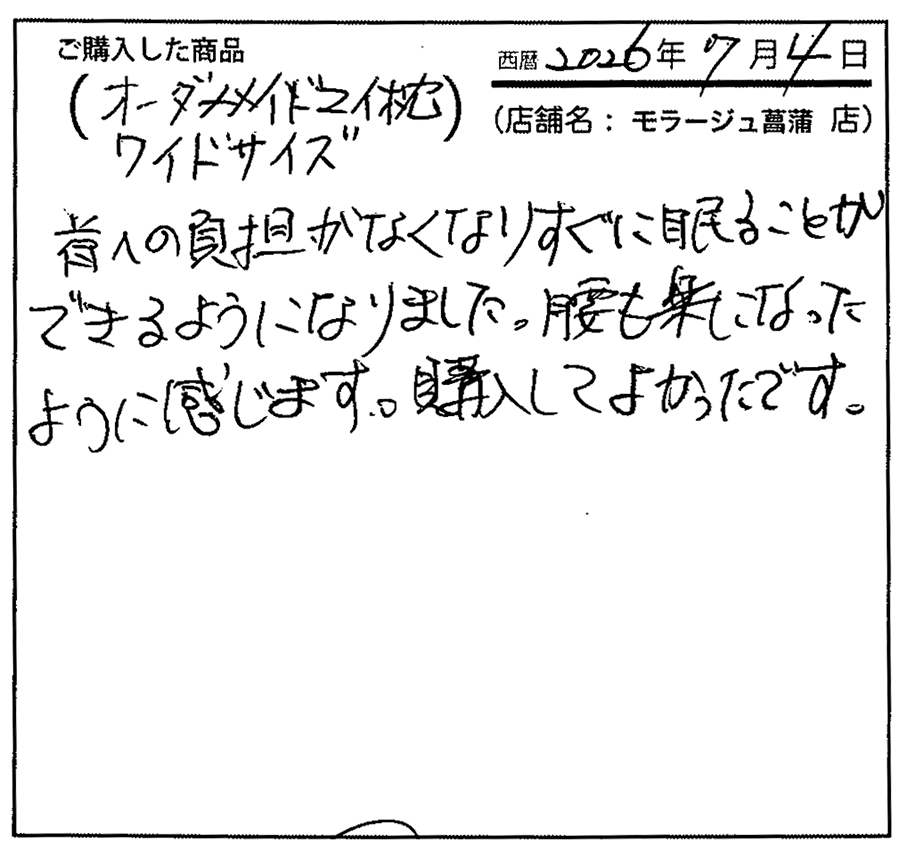 ご購入した商品
西暦 2026年 7月 4日
(オーダーメイドマイ枕)
ワイドサイズ
(店舗名： モラージュ菖蒲 店)
首への負担がなくなりすぐに眠ることが
できるようになりました。腰も楽になった
ように感じます。購入してよかったです。